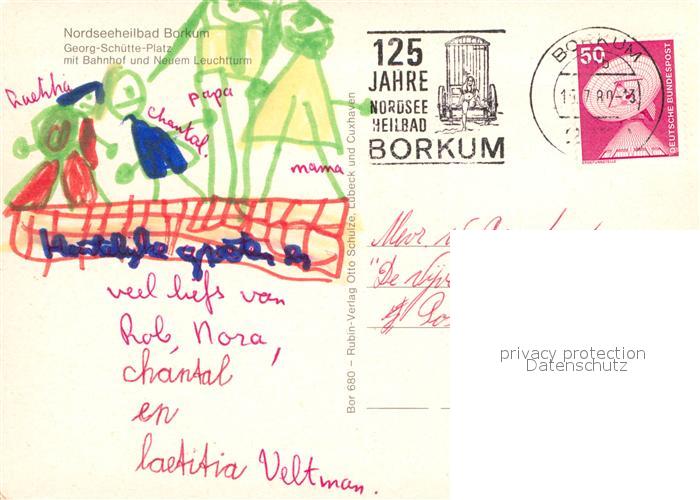 Nordseeheilbad Borkum
Georg-Schütte-Platz
mit Bahnhof und Neuem Leuchtturm
papa
chantal.
mama
Hartelijke groeten en
veel liefs van
Rob, Nora,
chántal
en
laetitia Veltman.
Bor 680 – Rubin-Verlag Otto Schulze, Lübeck und Cuxhaven
125
JAHRE
NORDSEE
HEILBAD
BORKUM
BORKUM
50
DEUTSCHE BUNDESPOST
Mevr
"De
privacy protection
Datenschutz